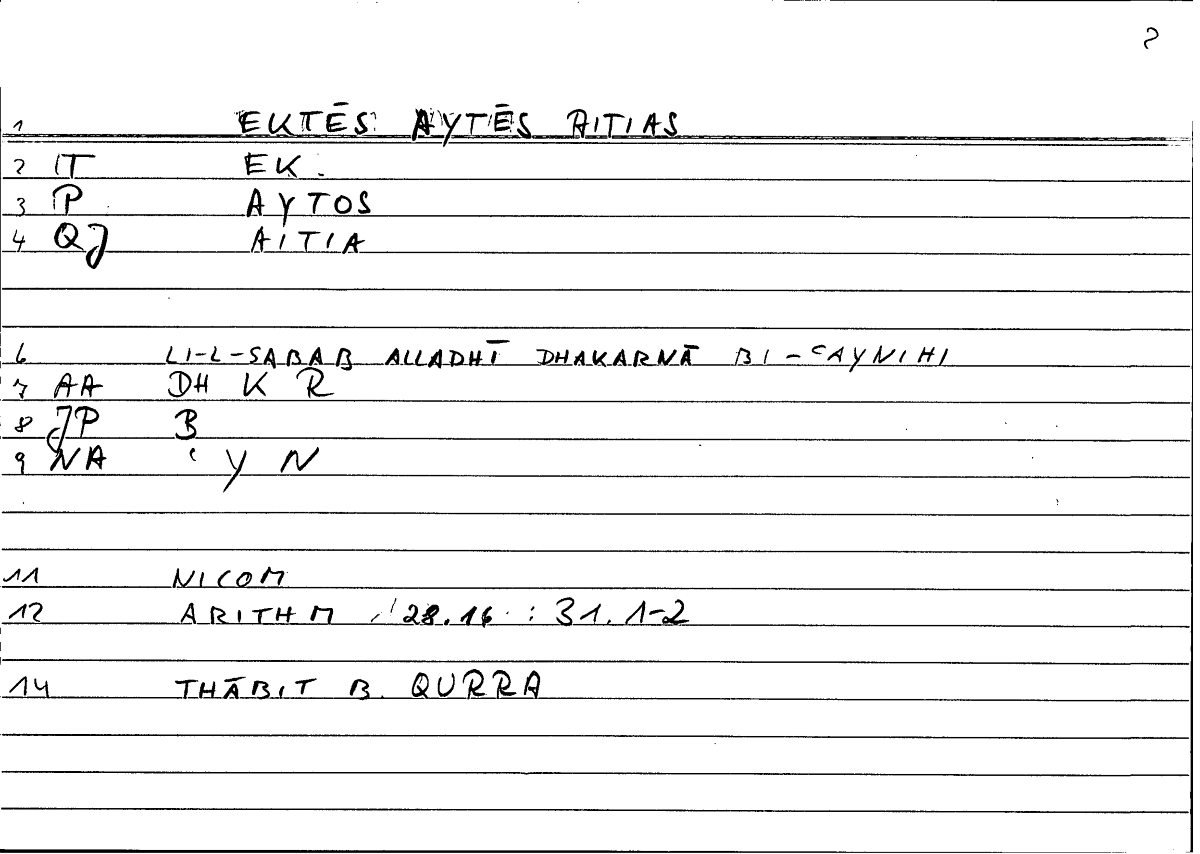 2
1 EKTĒS AYTĒS AITIAS
2 IT EK.
3 P AYTOS
4 QJ AITIA
6 LI-L-SABAB ALLADHĪ DHAKARNĀ BI-ʿAYNIHI
7 AA DH K R
8 JP B
9 NA ʿ Y N
11 NICOM
12 ARITHM 28.16 : 31.1-2
14 THĀBIT B. QURRA